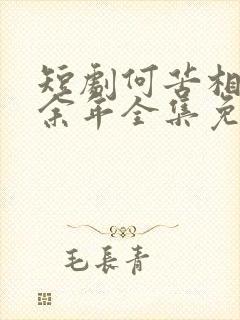 短剧何苦相
余年全集免
毛長青